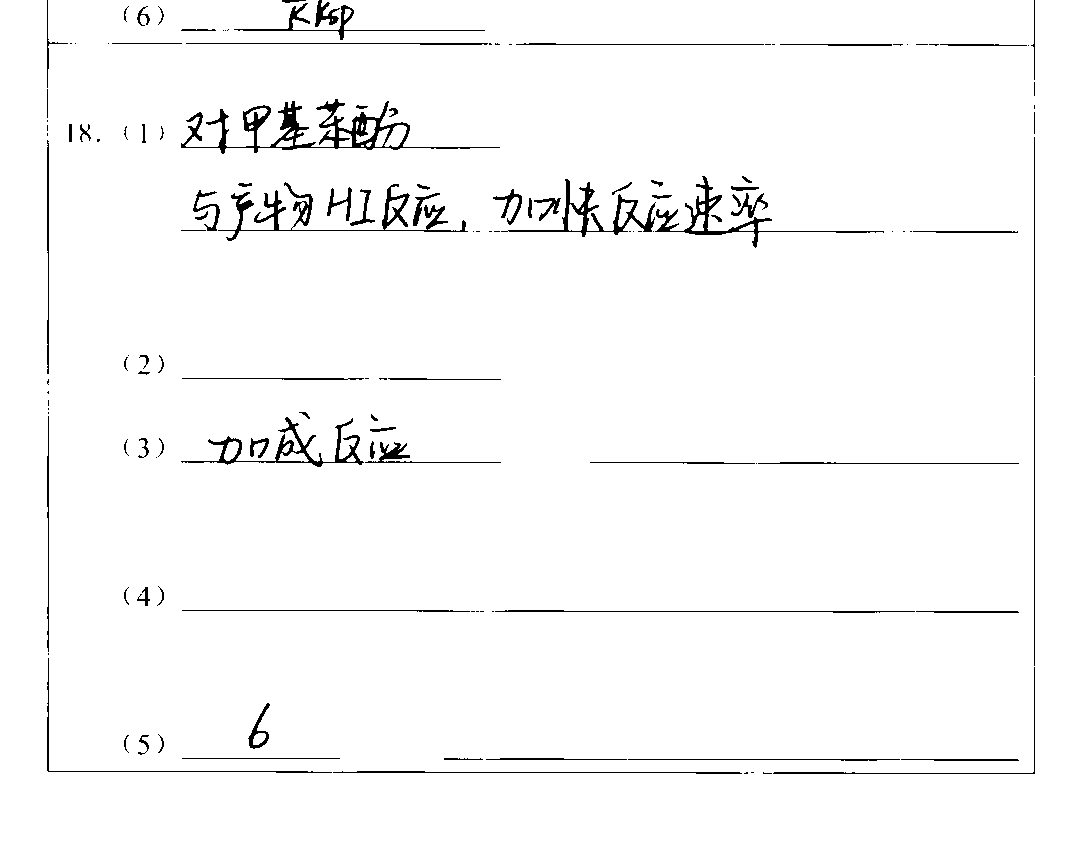 (6) KKsp
18. (1) 对甲基苯酚
与产物HI反应，加快反应速率
(2)
(3) 加成反应
(4)
(5) 6